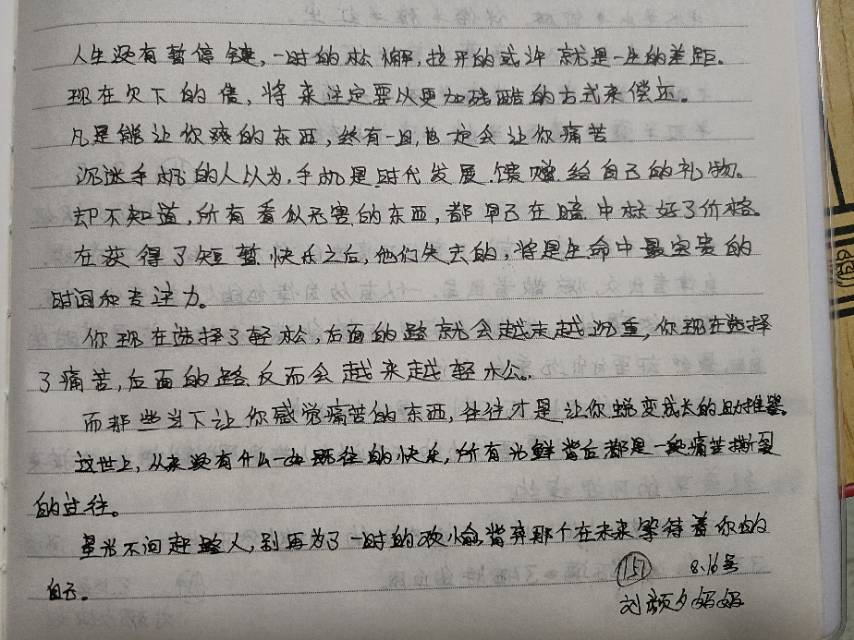 人生没有暂停键,一时的松懈,拉开的或许就是一生的差距。
现在欠下的债,将来注定要以更加残酷的方式来偿还。
凡是能让你爽的东西,终有一日,也一定会让你痛苦
沉迷手机的人以为,手机是时代发展馈赠给自己的礼物。
却不知道,所有看似无害的东西,都早已在暗中标好了价格。
在获得了短暂快乐之后,他们失去的,将是生命中最宝贵的
时间和专注力。
你现在选择了轻松,后面的路就会越来越沉重,你现在选择
了痛苦,后面的路反而会越来越轻松。
而那些当下让你感觉痛苦的东西,往往才是让你蜕变成长的助推器
这世上,从来没有什么一如既往的快乐,所有光鲜背后都是一段痛苦撕裂
的过往。
星光不问赶路人,别再为了一时的欢愉背弃那个在未来等待着你的
自己。
(151) 8.16号
刘颜夕妈妈